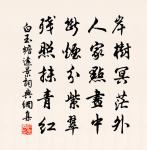 岸樹冥茫外
人家點畫中
斷煙分紫翠
殘照抹青紅
白玉蟾遠景詞典網集